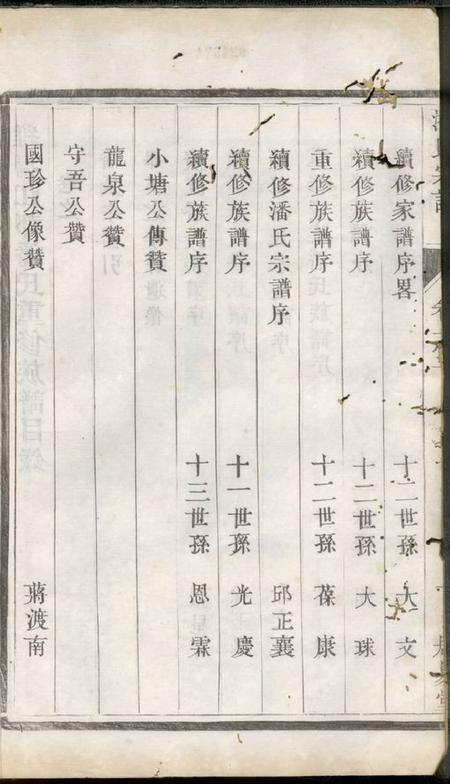 續修家譜序畧 十二世孫 大文
續修族譜序 十二世孫 大球
重修族譜序 十二世孫 葆康
續修潘氏宗譜序 邱正襄
續修族譜序 十一世孫 光慶
續修族譜序 十三世孫 恩霖
小塘公傳贊
龍泉公贊
守吾公贊
國珍公像贊 蔣渡南